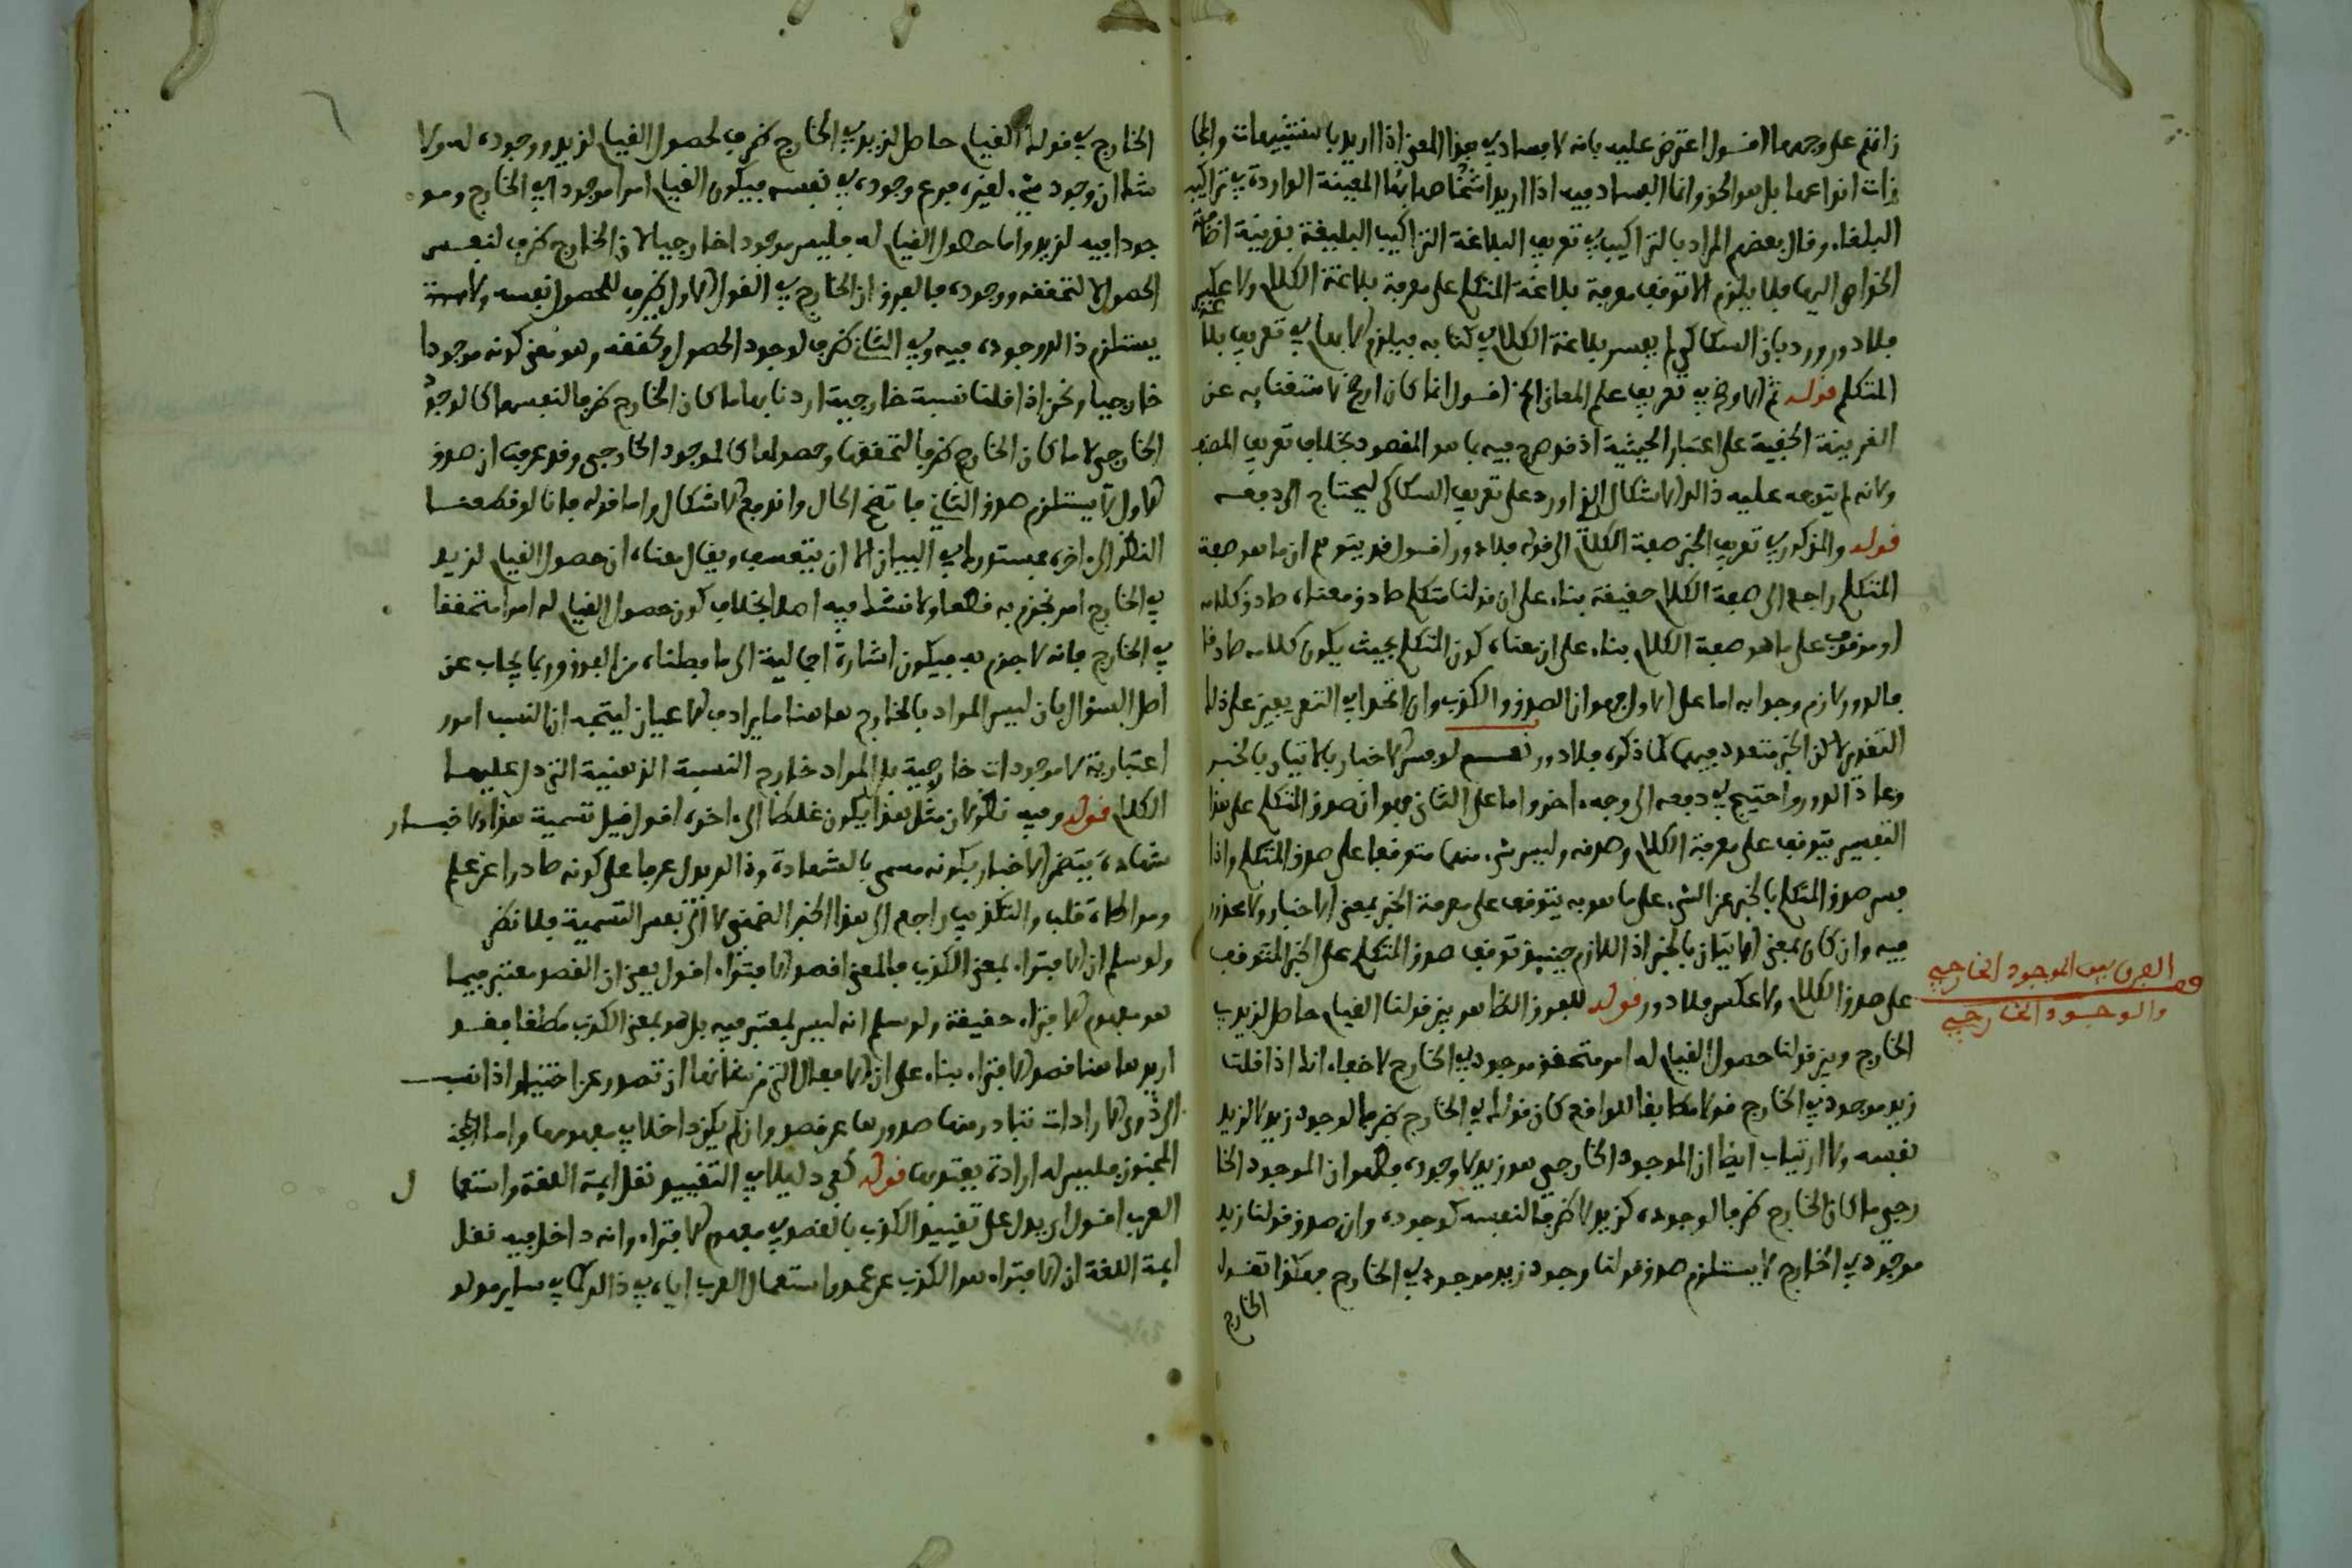 زانتم على وجهها اقول اعترض عليه بانه لا فساد في هذا المعنى اذا اريد بالتشبيهات والمجا
زات انواعها بل هو الحق وانما الفساد فيه اذا اريد اشخاصها المعينة الواردة في تراكيب
البلغاء وقال بعضهم المراد بالتراكيب في تعريف البلاغة التراكيب البليغة بقرينة اضافة
الخواص اليها فلا يلزم الا توقف معرفة بلاغة المتكلم على معرفة بلاغة الكلام ولا عكس
فلا دور ورد بان السكاكي لم يفسر بلاغة الكلام في كتابه فيلزم الابهام في تعريف بلاغة
المتكلم قوله ثم الاوضح في تعريف علم المعاني الخ اقول انما كان اوضح لاستغنايه عن
القرينة الخفية على اعتبار الحيثية اذ قد صرح فيه بما هو المقصود بخلاف تعريف المصنف
ولانه لم يتوجه عليه ذالك الاشكال الذي اورد على تعريف السكاكي ليحتاج الى دفعه
قوله والمذكور في تعريف الخبر صفة الكلام الى قوله فلا دور اقول قد يتوهم ان ما هو صفة
المتكلم راجع الى صفة الكلام حقيقة بناء على ان قولنا متكلم صادق معناه صادق كلامه
او موقوف على ما هو صفة الكلام بناء على ان معناه كون المتكلم بحيث يكون كلامه صادقا
فالدور لازم وجوابه اما على الاول فهو ان الصدق والكذب وان اتحدا في التعريفين على ذلك
التقدير لاكن الخبر متعدد فيهما كما ذكره فلا دور نعم لو فسر الاخبار بالاتيان بالخبر
وعاد الدور واحتيج في دفعه الى وجه اخر واما على الثاني فهو ان صدق المتكلم على هذا
التفسير يتوقف على معرفة الكلام وصدقه وليس شيء منهما متوقفا على صدق المتكلم واذا
فسر صدق المتكلم بالخبر عن الشيء على ما هو به يتوقف على معرفة الخبر بمعنى الاخبار ولا محذور
فيه وان كان بمعنى الاتيان بالخبر اذ اللازم حينئذ توقف صدق المتكلم على الخبر المتوقف
على صدق الكلام ولا عكس فلا دور قوله للفرق الظاهر بين قولنا القيام حاصل لزيد في
الخارج وبين قولنا حصول القيام له امر متحقق موجود في الخارج لا خفاء انك اذا قلت
زيد موجود في الخارج قولا مطابقا للواقع كان قولك في الخارج ظرفا لوجود زيد لا لزيد
نفسه ولا ارتياب ايضا ان الموجود الخارجي هو زيد لا وجوده فظهر ان الموجود الخا
رجي ما كان الخارج ظرفا لوجوده كزيد لا ظرفا لنفسه كوجوده وان صدق قولنا زيد
موجود في الخارج لا يستلزم صدق قولنا وجود زيد موجود في الخارج فهكذا تقول
الخارج
قف الفرق بين الموجود الخارجي
والوجود الخارجي
الخارج في قولك القيام حاصل لزيد في الخارج ظرف لحصول القيام لزيد ووجوده له ولا
شك ان وجود شيء لغيره فرع وجوده في نفسه فيكون القيام امرا موجودا في الخارج ومو
جودا فيه لزيد واما حصول القيام له فليس موجودا خارجيا لان الخارج ظرف لنفس
الحصول لا لتحققه ووجوده فالفرق ان الخارج في القول الاول ظرف للحصول نفسه ولا
يستلزم ذالك وجوده فيه وفي الثاني ظرف لوجود الحصول وتحققه وهو معنى كونه موجودا
خارجيا ونحن اذا قلنا نسبة خارجية اردنا بها ما كان الخارج ظرفا لنفسها كالوجود
الخارجي لا ما كان الخارج ظرفا لتحققها وحصولها كالموجود الخارجي وقد عرفت ان صدق
الاول لا يستلزم صدق الثاني فاتضح الحال واندفع الاشكال واما قوله فانا لو قطعنا
النظر الى اخره فمستدرك في البيان الا ان يتعسف ويقال معناه ان حصول القيام لزيد
في الخارج امر نجزم به قطعا ولا نشك فيه اصلا بخلاف كون حصول القيام له امرا متحققا
في الخارج فانه لا جزم به فيكون اشارة اجمالية الى ما فصلناه من الفرق وربما يجاب عن
اصل السؤال بان ليس المراد بالخارج هاهنا ما يرادف الاعيان ليتجه ان النسب امور
اعتبارية لا موجودات خارجية بل المراد خارج النسبة الذهنية التي دل عليها
الكلام قوله وفيه نظر لان مثل هذا يكون غلطا الى اخره اقول قيل تسمية هذا الاخبار
شهادة يتضمن الاخبار بكونه مسمى بالشهادة وذالك يدل عرفا على كونه صادرا عن علم
ومواطاة قلب والتكذيب راجع الى هذا الخبر الضمني لا الى نفس التسمية فلا نظر
ولو سلم ان الافتراء بمعنى الكذب فالمعنى اقصد الافتراء اقول يعني ان القصد معتبر فيما
هو مفهوم الافتراء حقيقة ولو سلم انه ليس بمعتبر فيه بل هو بمعنى الكذب مطلقا فقد
اريد هاهنا قصد الافتراء بناء على ان الافعال التي من شانها ان تصدر عن اختيار اذا نسب
الى ذوي الارادات تبادر منها صدورها عن قصد وان لم يكن داخلا في مفهومها واما
المجنون فليس له ارادة يعتد بها قوله كفى دليلا في التقييد نقل ايمة اللغة واستعما ل
العرب اقول اي يدل على تقييد الكذب بالقصد في مفهوم الافتراء وانه داخل فيه نقل
ايمة اللغة ان الافتراء هو الكذب عن عمد واستعمال العرب اياه في ذالك كما في ساير مدلو